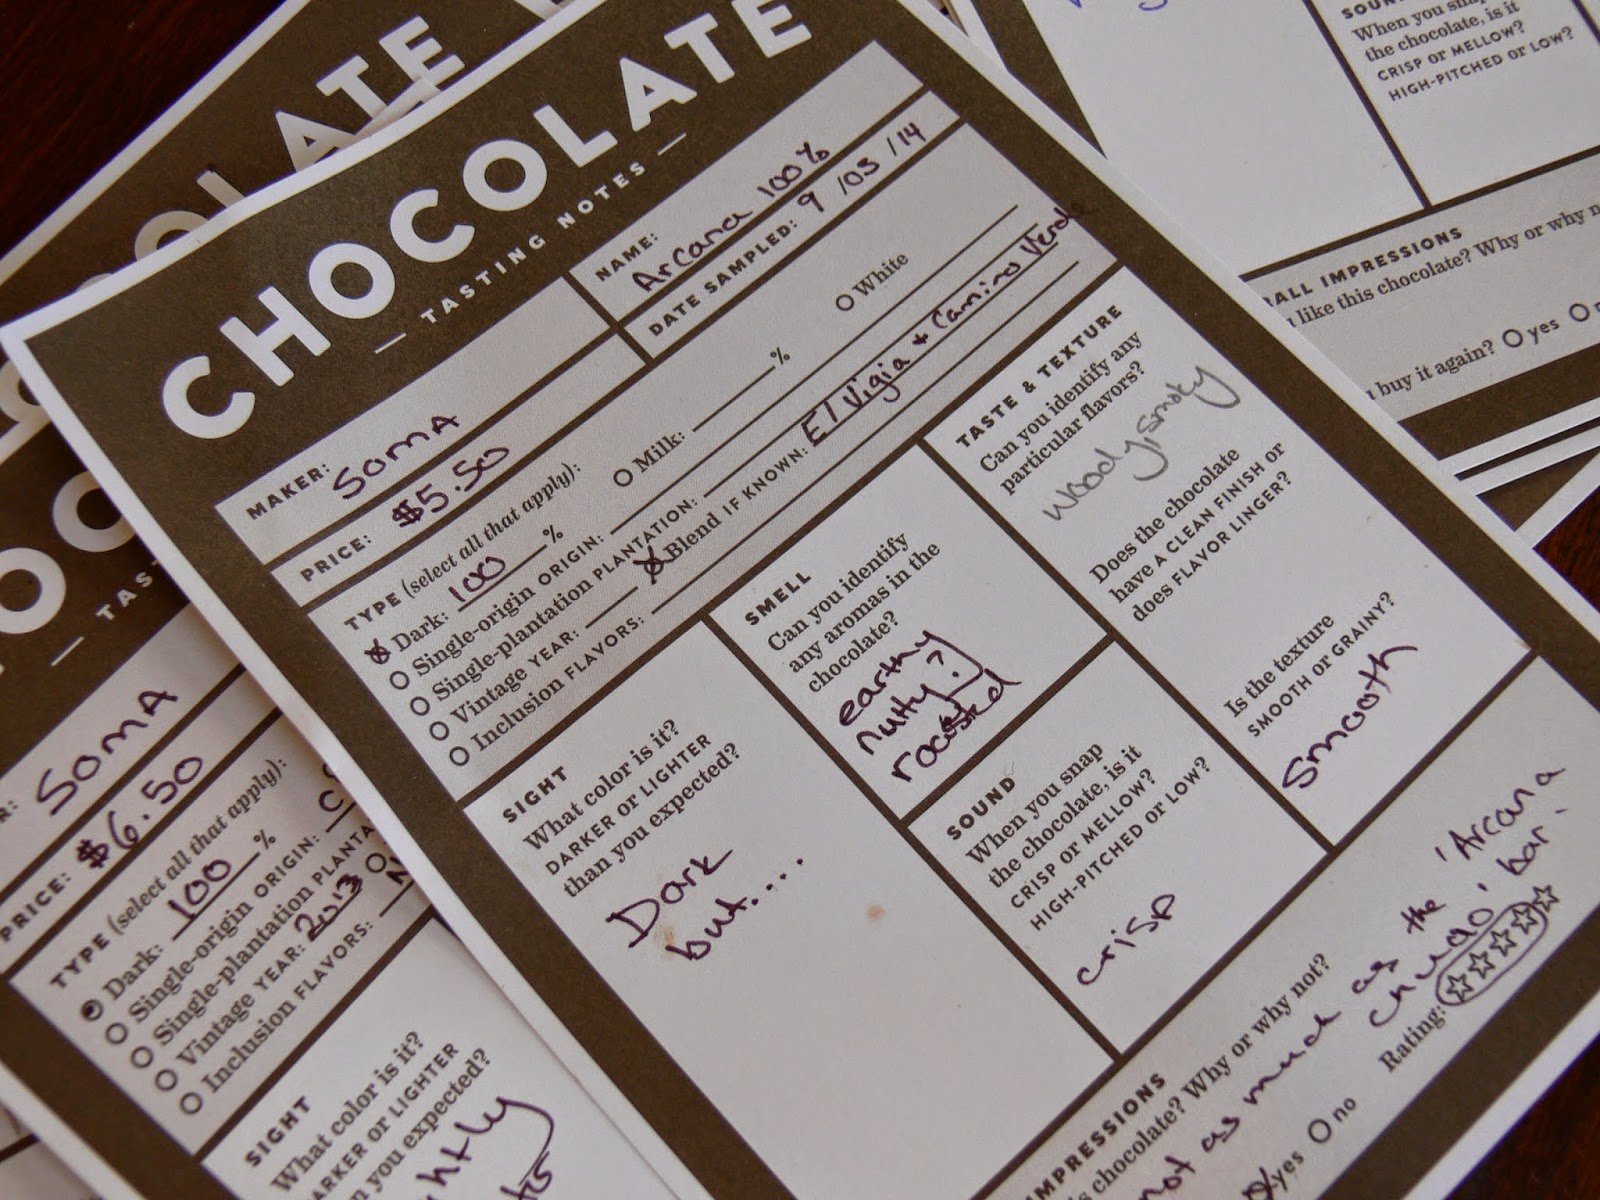 CHOCOLATE
— TASTING NOTES —
MAKER: SOMA
NAME: Arcana 100%
PRICE: $5.50
DATE SAMPLED: 9 /03 /14
TYPE (select all that apply):
Dark: 100 %
Milk: %
White
Single-origin ORIGIN:
Single-plantation PLANTATION:
Vintage YEAR:
Blend IF KNOWN: El Vigia + Camino Verde
Inclusion FLAVORS:
SIGHT
What color is it?
DARKER or LIGHTER
than you expected?
Dark
but....
SMELL
Can you identify
any aromas in the
chocolate?
earthy
nutty?
roasted
SOUND
When you snap
the chocolate, is it
CRISP or MELLOW?
HIGH-PITCHED or LOW?
crisp
TASTE & TEXTURE
Can you identify any
particular flavors?
woody, smoky
Does the chocolate
have A CLEAN FINISH or
does FLAVOR LINGER?
Is the texture
SMOOTH or GRAINY?
Smooth
IMPRESSIONS
chocolate? Why or why not?
not as much as the 'Arcana
bar.
yes no
Rating:
OLATE
TAS
SOMA
PRICE: $6.50
TYPE (select all that apply):
Dark: 100 %
Single-origin ORIGIN:
Single-plantation PLANTA
Vintage YEAR: 2013
Inclusion FLAVORS:
SIGHT
What color is it?
DARKER or LIGHTER
you expected?
SOUN
When you snap
the chocolate, is it
CRISP or MELLOW?
HIGH-PITCHED or LOW?
ALL IMPRESSIONS
like this chocolate? Why or why n
buy it again? yes